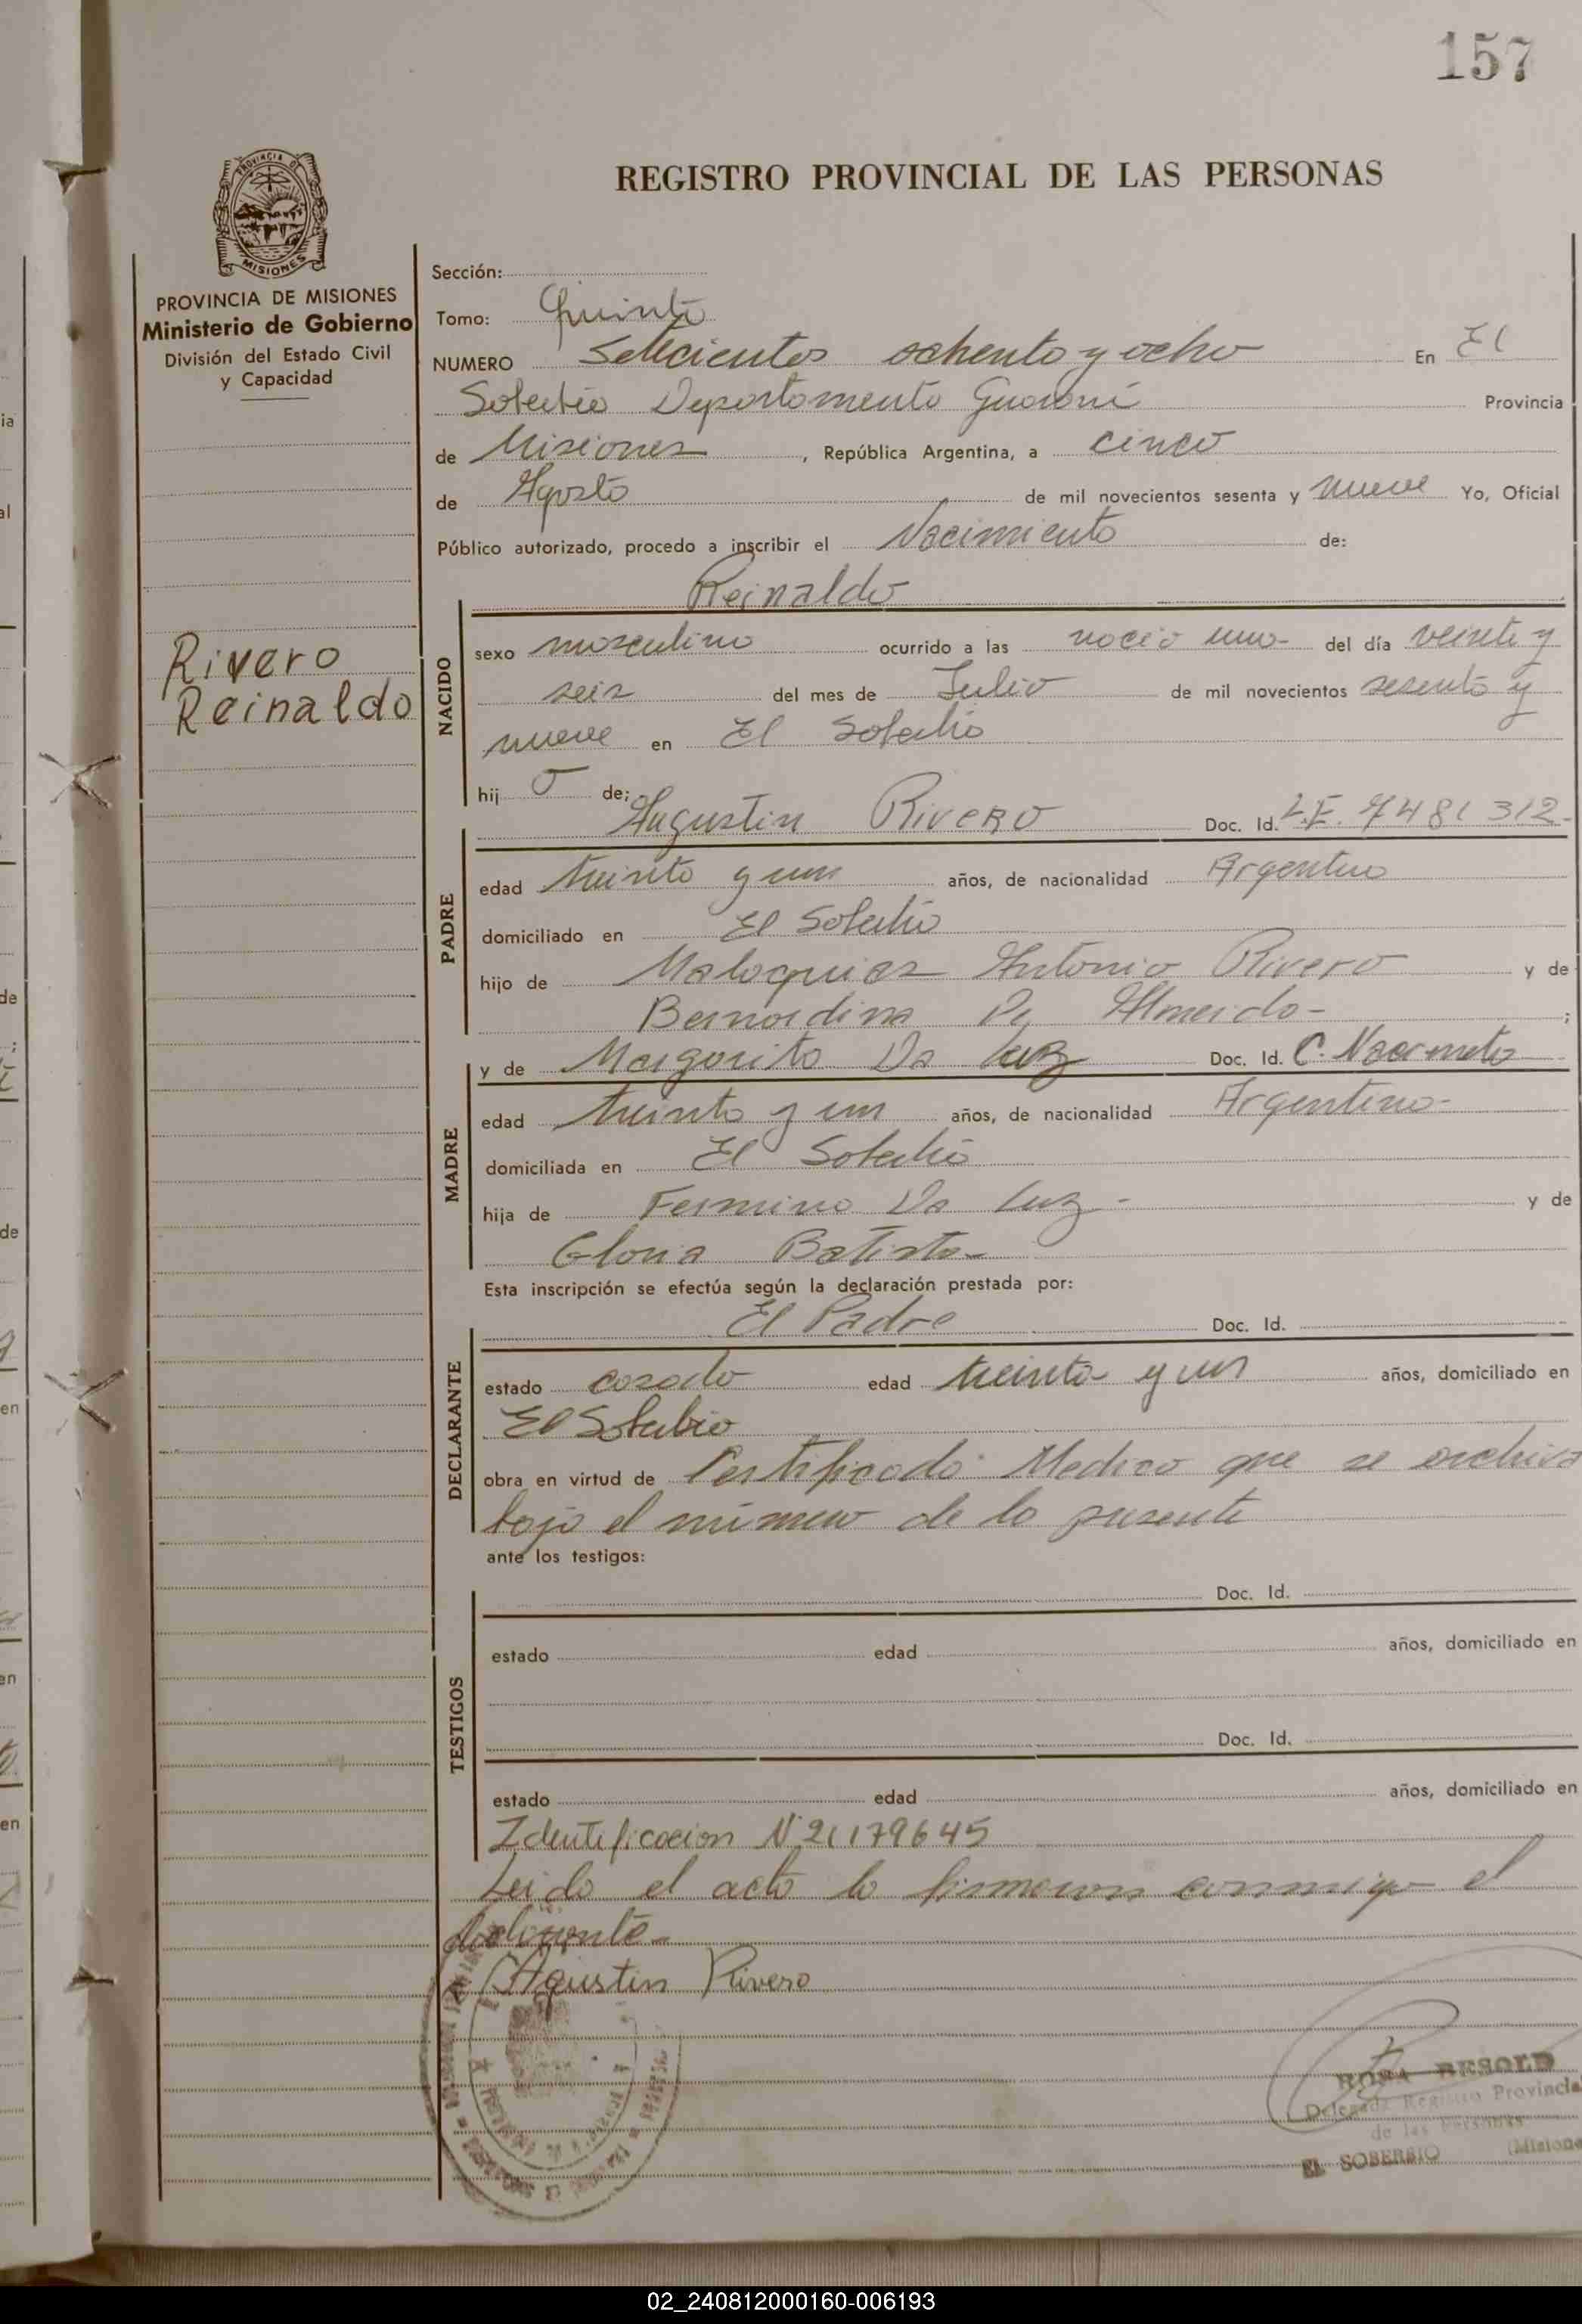 157
REGISTRO PROVINCIAL DE LAS PERSONAS
PROVINCIA DE MISIONES
PROVINCIA DE MISIONES
Ministerio de Gobierno
División del Estado Civil
y Capacidad
Rivero
Reinaldo
Sección:
Tomo: Quinto
NUMERO Setecientos ochento y ocho En El
Soberbio Departamento Guarani Provincia
de Misiones, República Argentina, a cinco
de Agosto de mil novecientos sesenta y nueve Yo, Oficial
Público autorizado, procedo a inscribir el Nacimiento de:
Reinaldo
NACIDO
sexo masculino ocurrido a las del día veinte y
seis del mes de Julio de mil novecientos sesenta y
nueve en El Soberbio
hijo de:
Augustin Rivero Doc. Id. L.E. 7481312-
PADRE
edad treinta y un años, de nacionalidad Argentino
domiciliado en El Soberbio
hijo de Malaquias Antonio Rivero y de
Bernardina De Almeida - ;
y de Margarita Da Luz Doc. Id. C. Nacimto
MADRE
edad treinta y un años, de nacionalidad Argentina-
domiciliada en El Soberbio
hija de Fermino Da Luz - y de
Gloria Batista-
Esta inscripción se efectúa según la declaración prestada por:
El Padre Doc. Id.
DECLARANTE
estado casado edad treinta y un años, domiciliado en
El Soberbio
obra en virtud de Certificado Medico que se archiva
bajo el número de la presente
ante los testigos:
Doc. Id.
TESTIGOS
estado edad años, domiciliado en
Doc. Id.
estado edad años, domiciliado en
Identificacion Nº 21179645
Leida el acta la firmaron conmigo el
declarante-
Agustin Rivero
ROSA RESOLD
Delegada Registro Provincial
de las Personas
EL SOBERBIO (Misiones
02_240812000160-006193